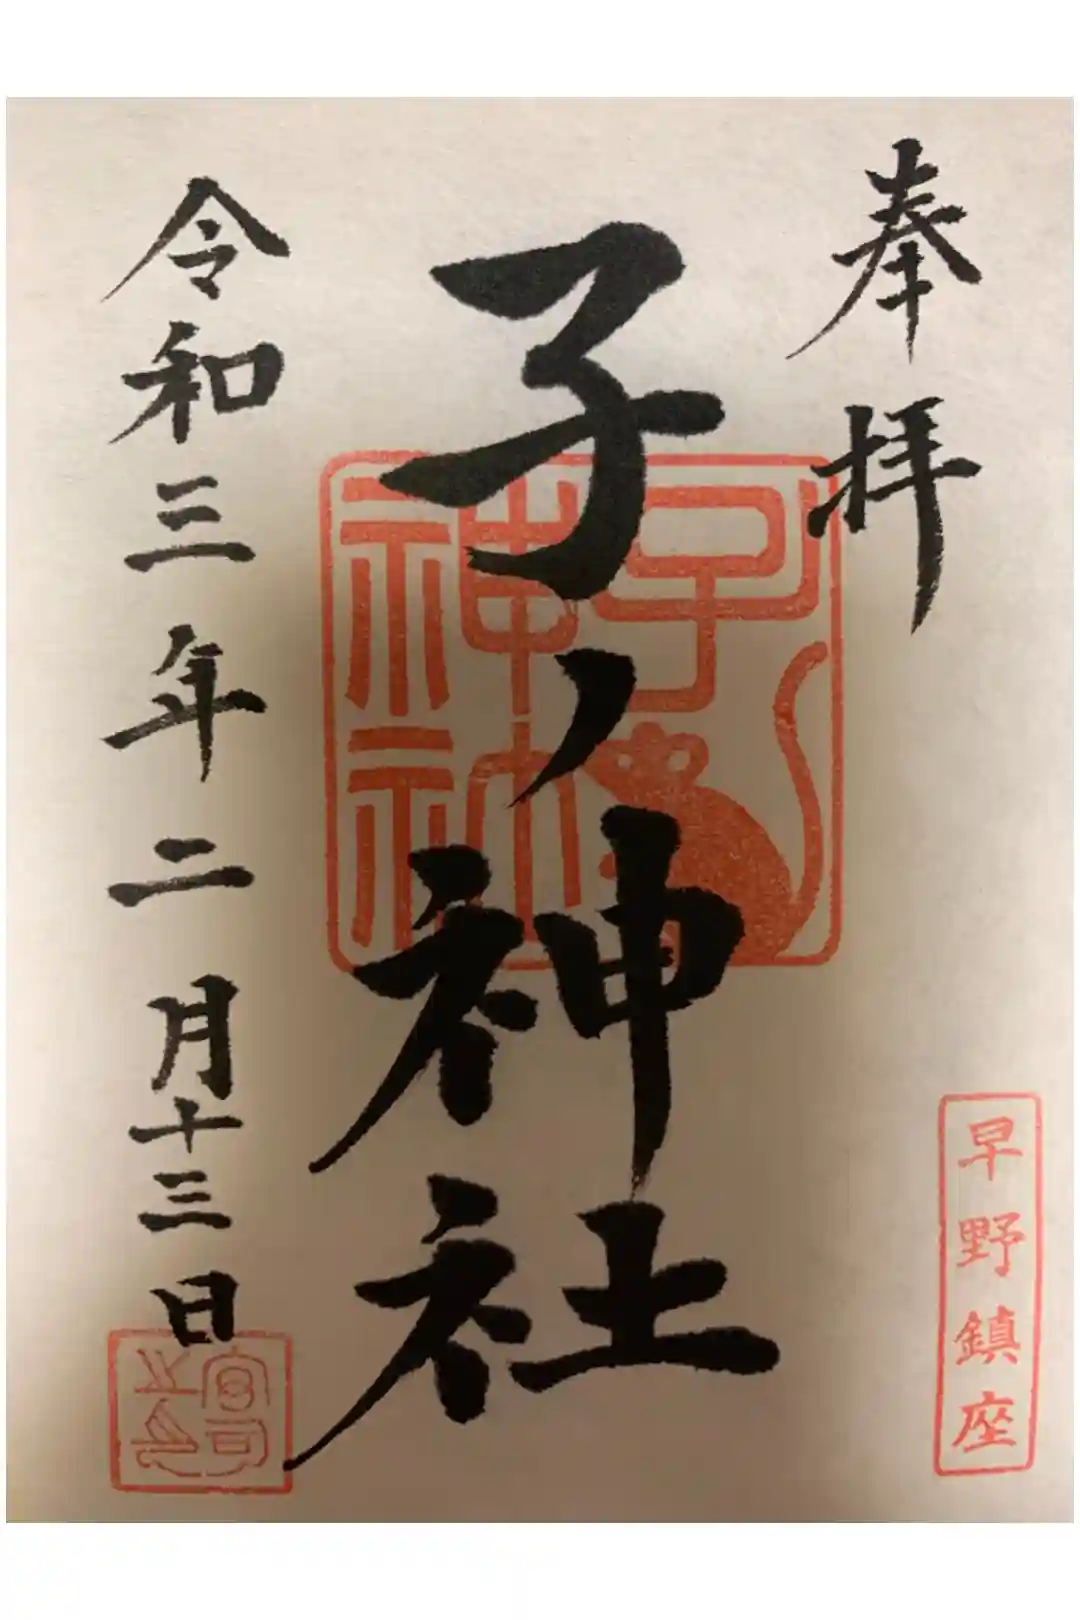 奉拝
早野鎮座
子ノ神社
子神社
令和三年二月十三日
宮司之印